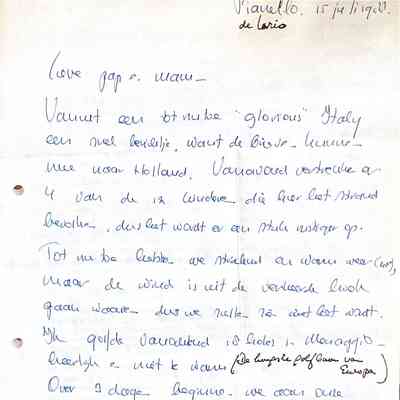 Pianello. 15 juli 1988.
de Lario
Lieve pap en mam -
Vanuit een tot nu toe "glorious" Italy
een snel briefje, want de
mee naar Holland. Vanavond vertrekken er
4 van de 12 kinderen die hier het strand
bevolken, dus het wordt er een stuk rustiger op.
Tot nu toe hebben we stralend en warm weer
maar de wind is uit de verkeerde hoek
gaan waaien dus we zullen zien wat het wordt.
Ik golfde vanochtend 18 holes in Menaggio -
heerlijk en niet te warm (De hoogste golfbaan van
Europa)
Over 9 dagen beginnen we aan onze